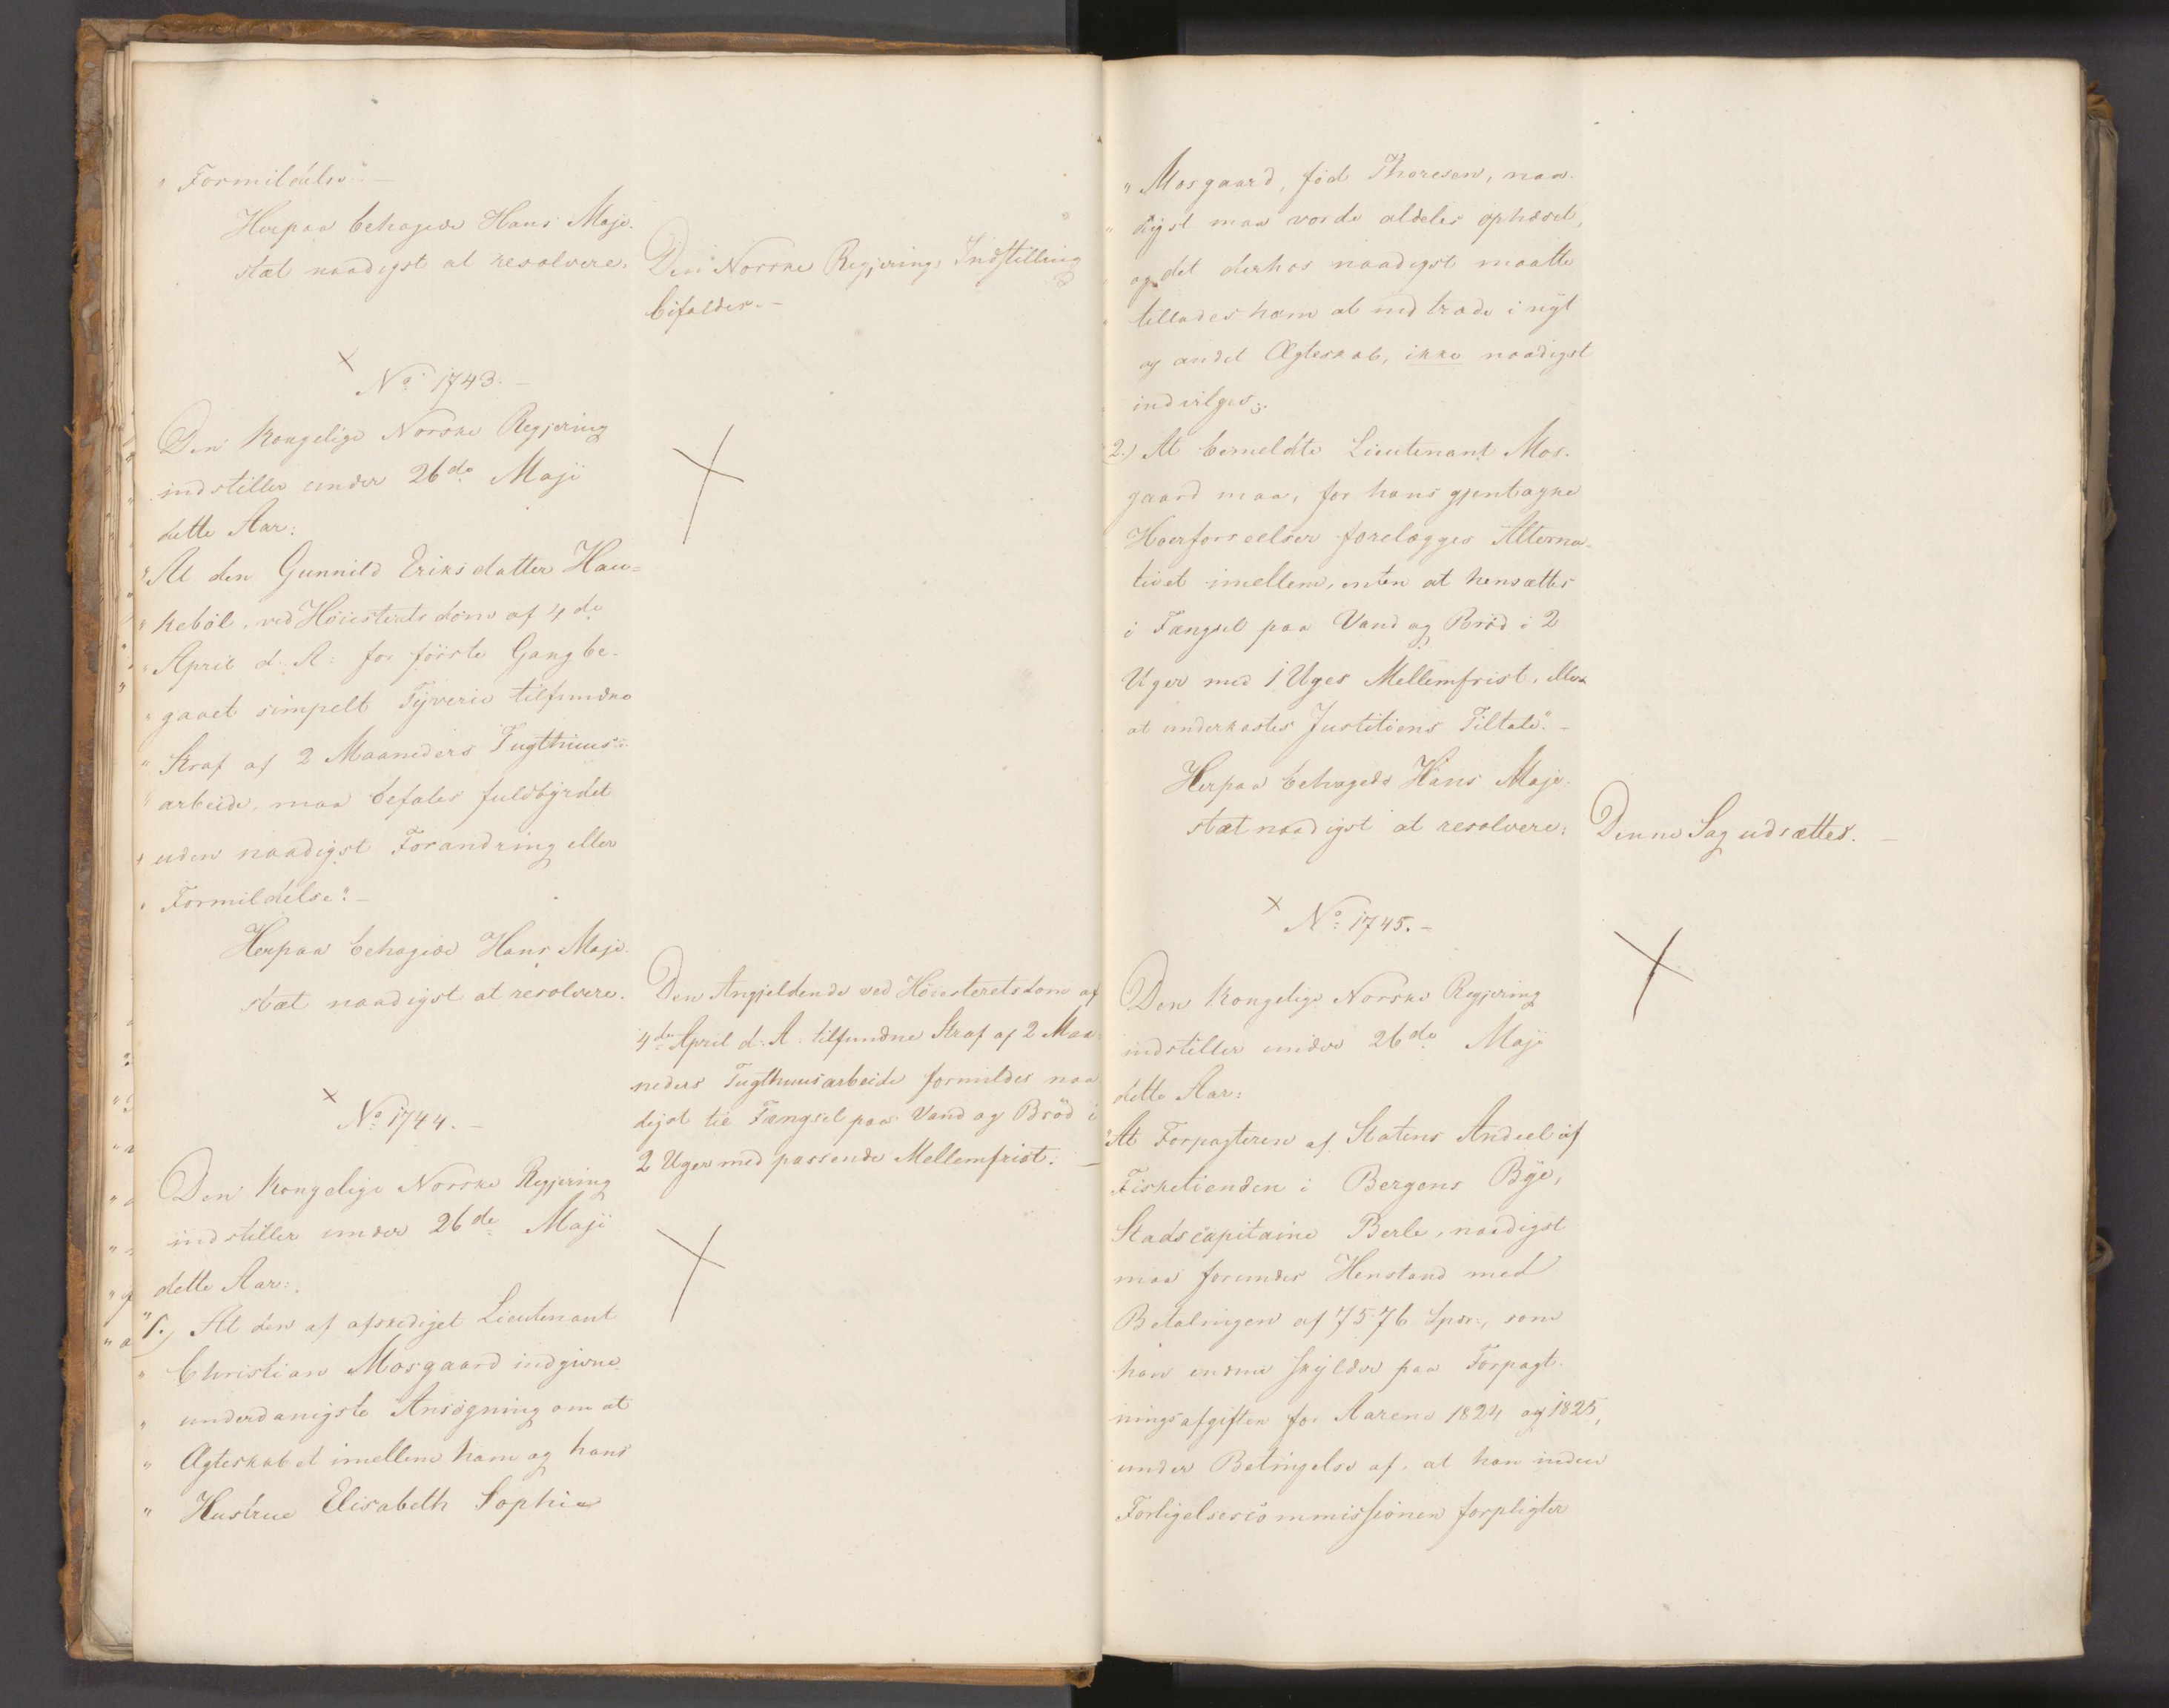 " Formildelse". —
Herpaa behagede Hans Maje-
stæt naadigst at resolvere:
Den Norske Regjerings Indstilling
bifaldes. —
No 1743. —
Den Kongelige Norske Regjering
indstiller under 26de Maji
dette Aar:
"At den Gunnild Eriksdatter Hau=
" keböl, ved Höiesteretsdom af 4de
" April d. A: for förste Gang be-
" gaaet simpelt Tyverie tilfundne
" Straf af 2 Maaneders Tugthuus=
" arbeide, maa befales fuldbyrdet
" uden naadigst Forandring eller
" Formildelse". —
Herpaa behagede Hans Maje-
stæt naadigst at resolvere:
Den Angjeldende ved Höiesteretsdom af
4de April d: A: tilfundne Straf af 2 Maa-
neders Tugthuusarbeide formildes naa-
digst til Fængsel paa Vand og Bröd i
2 Uger med passende Mellemfrist. —
No 1744. —
Den Kongelige Norske Regjering
indstiller under 26de Maji
dette Aar:
"1.) At den af afskediget Lieutenant
" Christian Mosgaard indgivne
" underdanigste Ansögning om at
" Ægteskabet imellem ham og hans
" Hustrue Elisabeth Sophie
" Mosgaard, föd Thoresen, naa-
" digst maa vorde aldeles ophævet,
" og det derhos naadigst maatte
" tillades ham at indtræde i nyt
og andet Ægteskab, ikke naadigst
indvilges;
2.) At bemeldte Lieutenant Mos-
gaard maa, for hans gjentagne
Hoerforseelser forelægges Alterna-
tivet imellem, enten at hensættes
i Fængsel paa Vand og Bröd i 2
Uger med 1 Uges Mellemfrist, eller
at underkastes Justitiens Tiltale". —
Herpaa behagede Hans Maje-
stæt naadigst at resolvere:
Denne Sag udsættes. —
No 1745. —
Den Kongelige Norske Regjering
indstiller under 26de Maji
dette Aar:
"At Forpagteren af Statens Andeel af
Fisketienden i Bergens Bye,
Stadscapitaine Berle, naadigst
maa forundes Henstand med
Betalingen af 7576 Spdr:, som
han endnu skylder paa Forpagt-
ningsafgiften for Aarene 1824 og 1825,
under Betingelse af, at han inden
Forligelsescommissionen forpligter